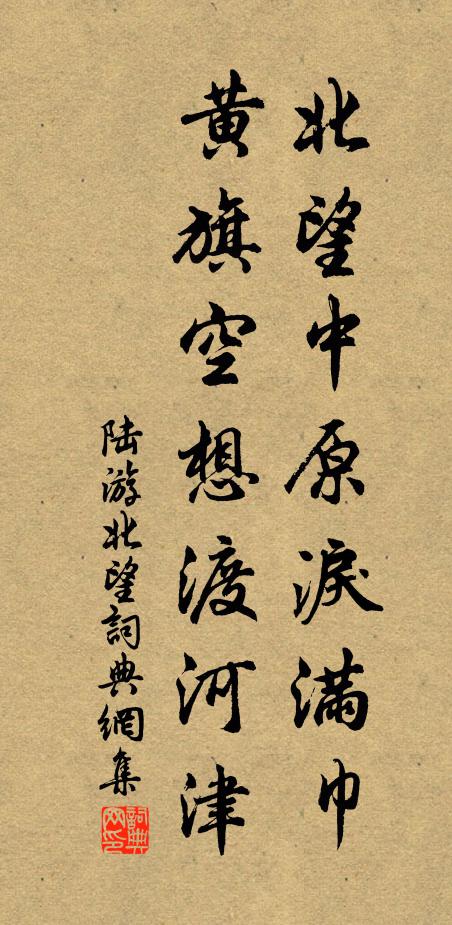 北望中原淚滿巾
黃旗空想渡河津
陆游北望詞典網集
詞典网印